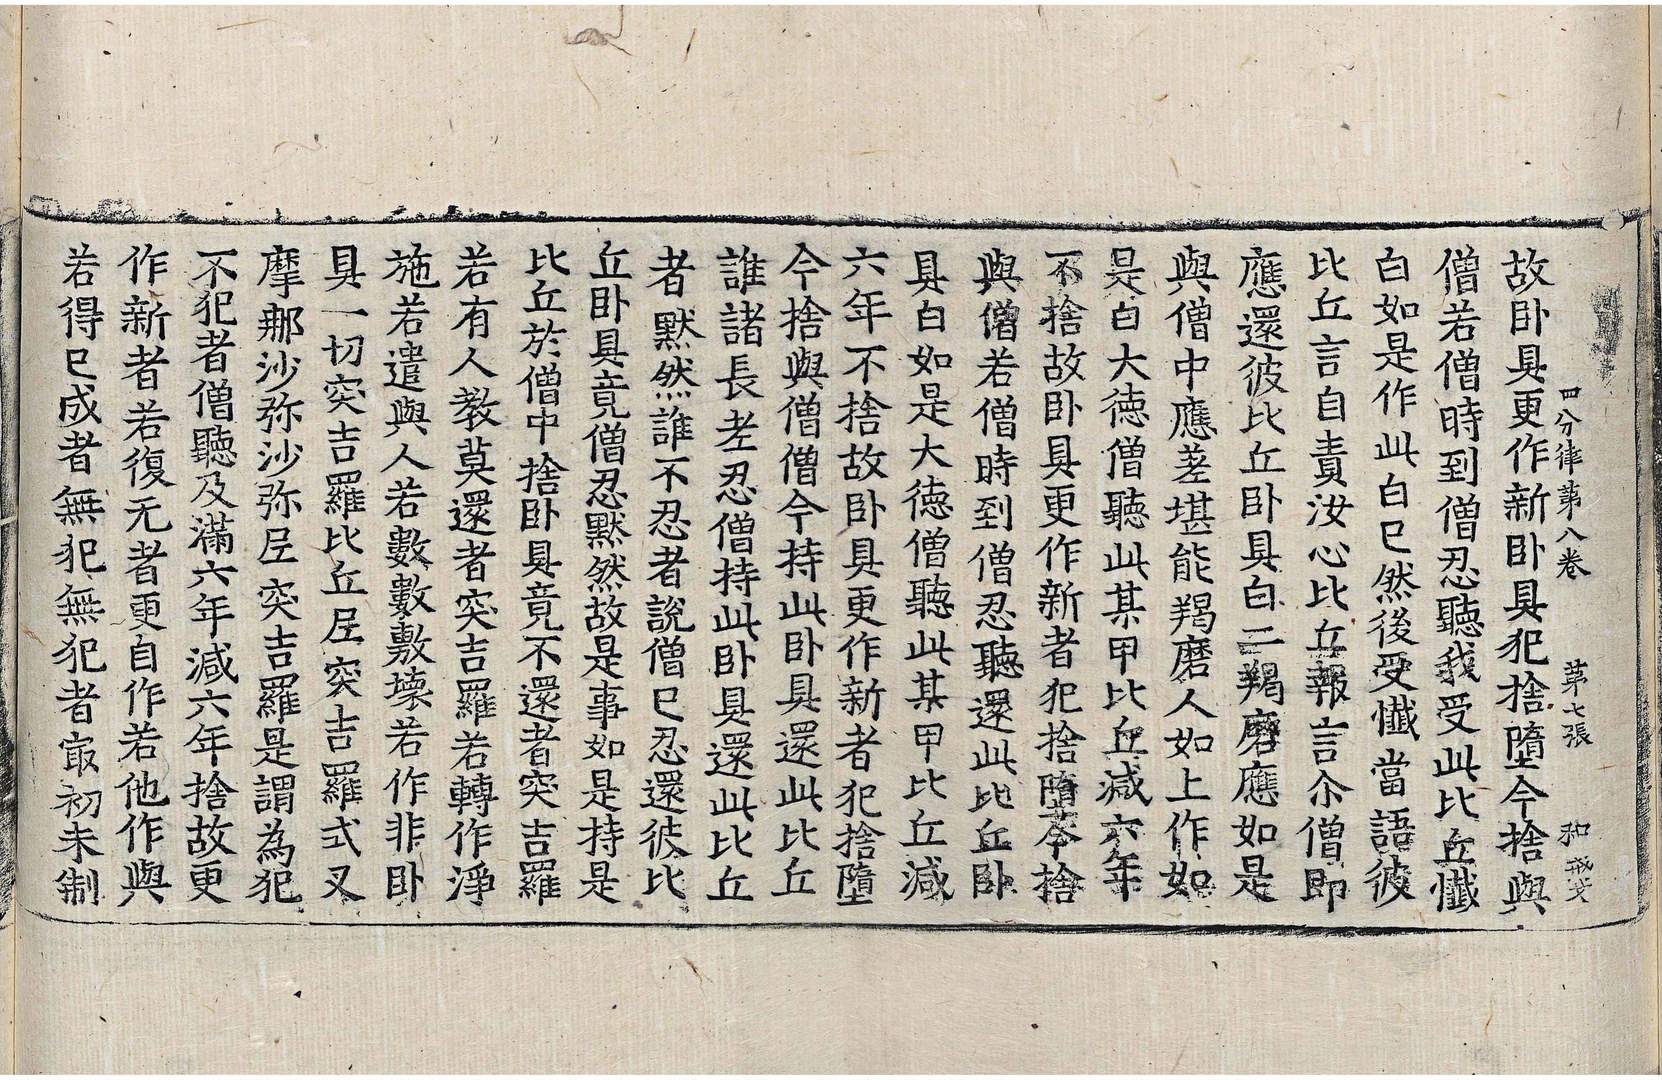 四分律第八卷 第七張 和
故卧具更作新卧具犯捨墮今捨與
僧若僧時到僧忍聽我受此比丘懺
白如是作此白已然後受懺當語彼
比丘言自責汝心比丘報言尒僧即
應還彼比丘卧具白二羯磨應如是
與僧中應差堪能羯磨人如上作如
是白大德僧聽此某甲比丘減六年
不捨故卧具更作新者犯捨墮今捨
與僧若僧時到僧忍聽還此比丘卧
具白如是大德僧聽此某甲比丘減
六年不捨故卧具更作新者犯捨墮
今捨與僧僧今持此卧具還此比丘
誰諸長老忍僧持此卧具還此比丘
者默然誰不忍者說僧已忍還彼比
丘卧具竟僧忍默然故是事如是持是
比丘於僧中捨卧具竟不還者突吉羅
若有人教莫還者突吉羅若轉作淨
施若遣與人若數數敷壞若作非卧
具一切突吉羅比丘尼突吉羅式叉
摩那沙弥沙弥尼突吉羅是謂為犯
不犯者僧聽及滿六年減六年捨故更
作新者若復无者更自作若他作與
若得已成者無犯無犯者㝡初未制